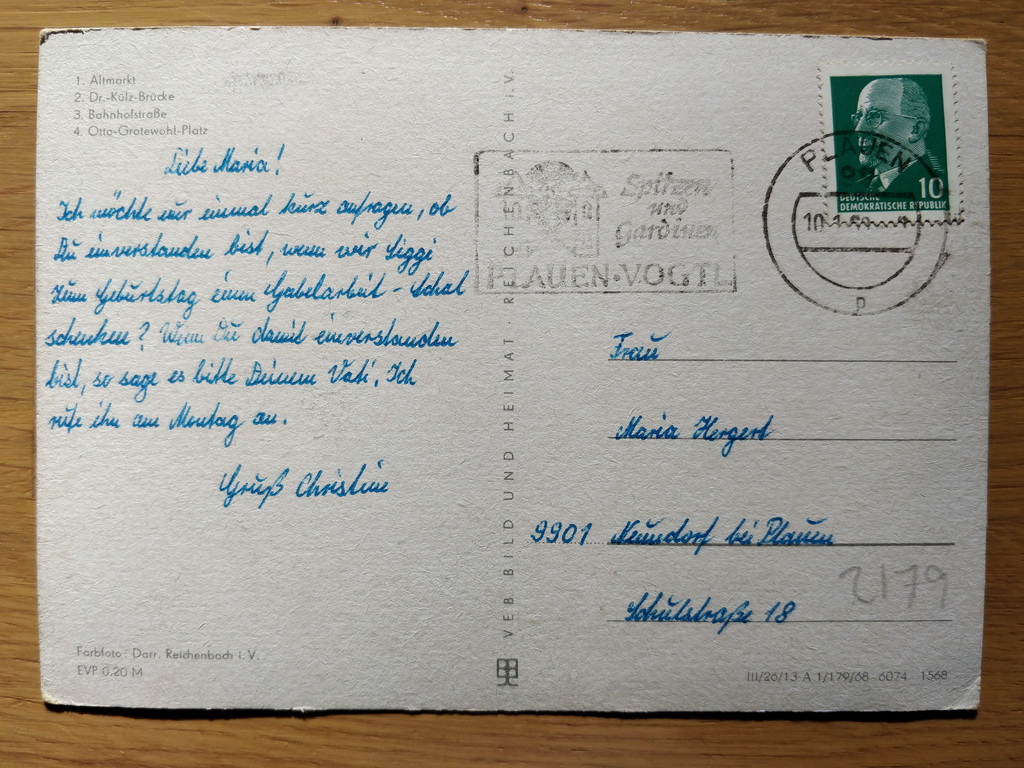 1. Altmarkt
2. Dr.-Külz-Brücke
3. Bahnhofstraße
4. Otto-Grotewohl-Platz
Liebe Maria!
Ich möchte nur einmal kurz anfragen, ob
Du einverstanden bist, wenn wir Siggi
zum Geburtstag einen Gabelarbeit-Schal
schenken? Wenn Du damit einverstanden
bist, so sage es bitte Deinem Vati. Ich
rufe ihn am Montag an.
Gruß Christine
Farbfoto: Darr, Reichenbach i. V.
EVP 0,20 M
VEB BILD UND HEIMAT REICHENBACH i. V.
Spitzen
und
Gardinen
PLAUEN·VOGTL
PLAUEN
10
p
10
DEUTSCHE
DEMOKRATISCHE REPUBLIK
Frau
Maria Hergert
9901 Neundorf bei Plauen
Schulstraße 18
2179
III/26/13 A 1/179/68 6074 1568